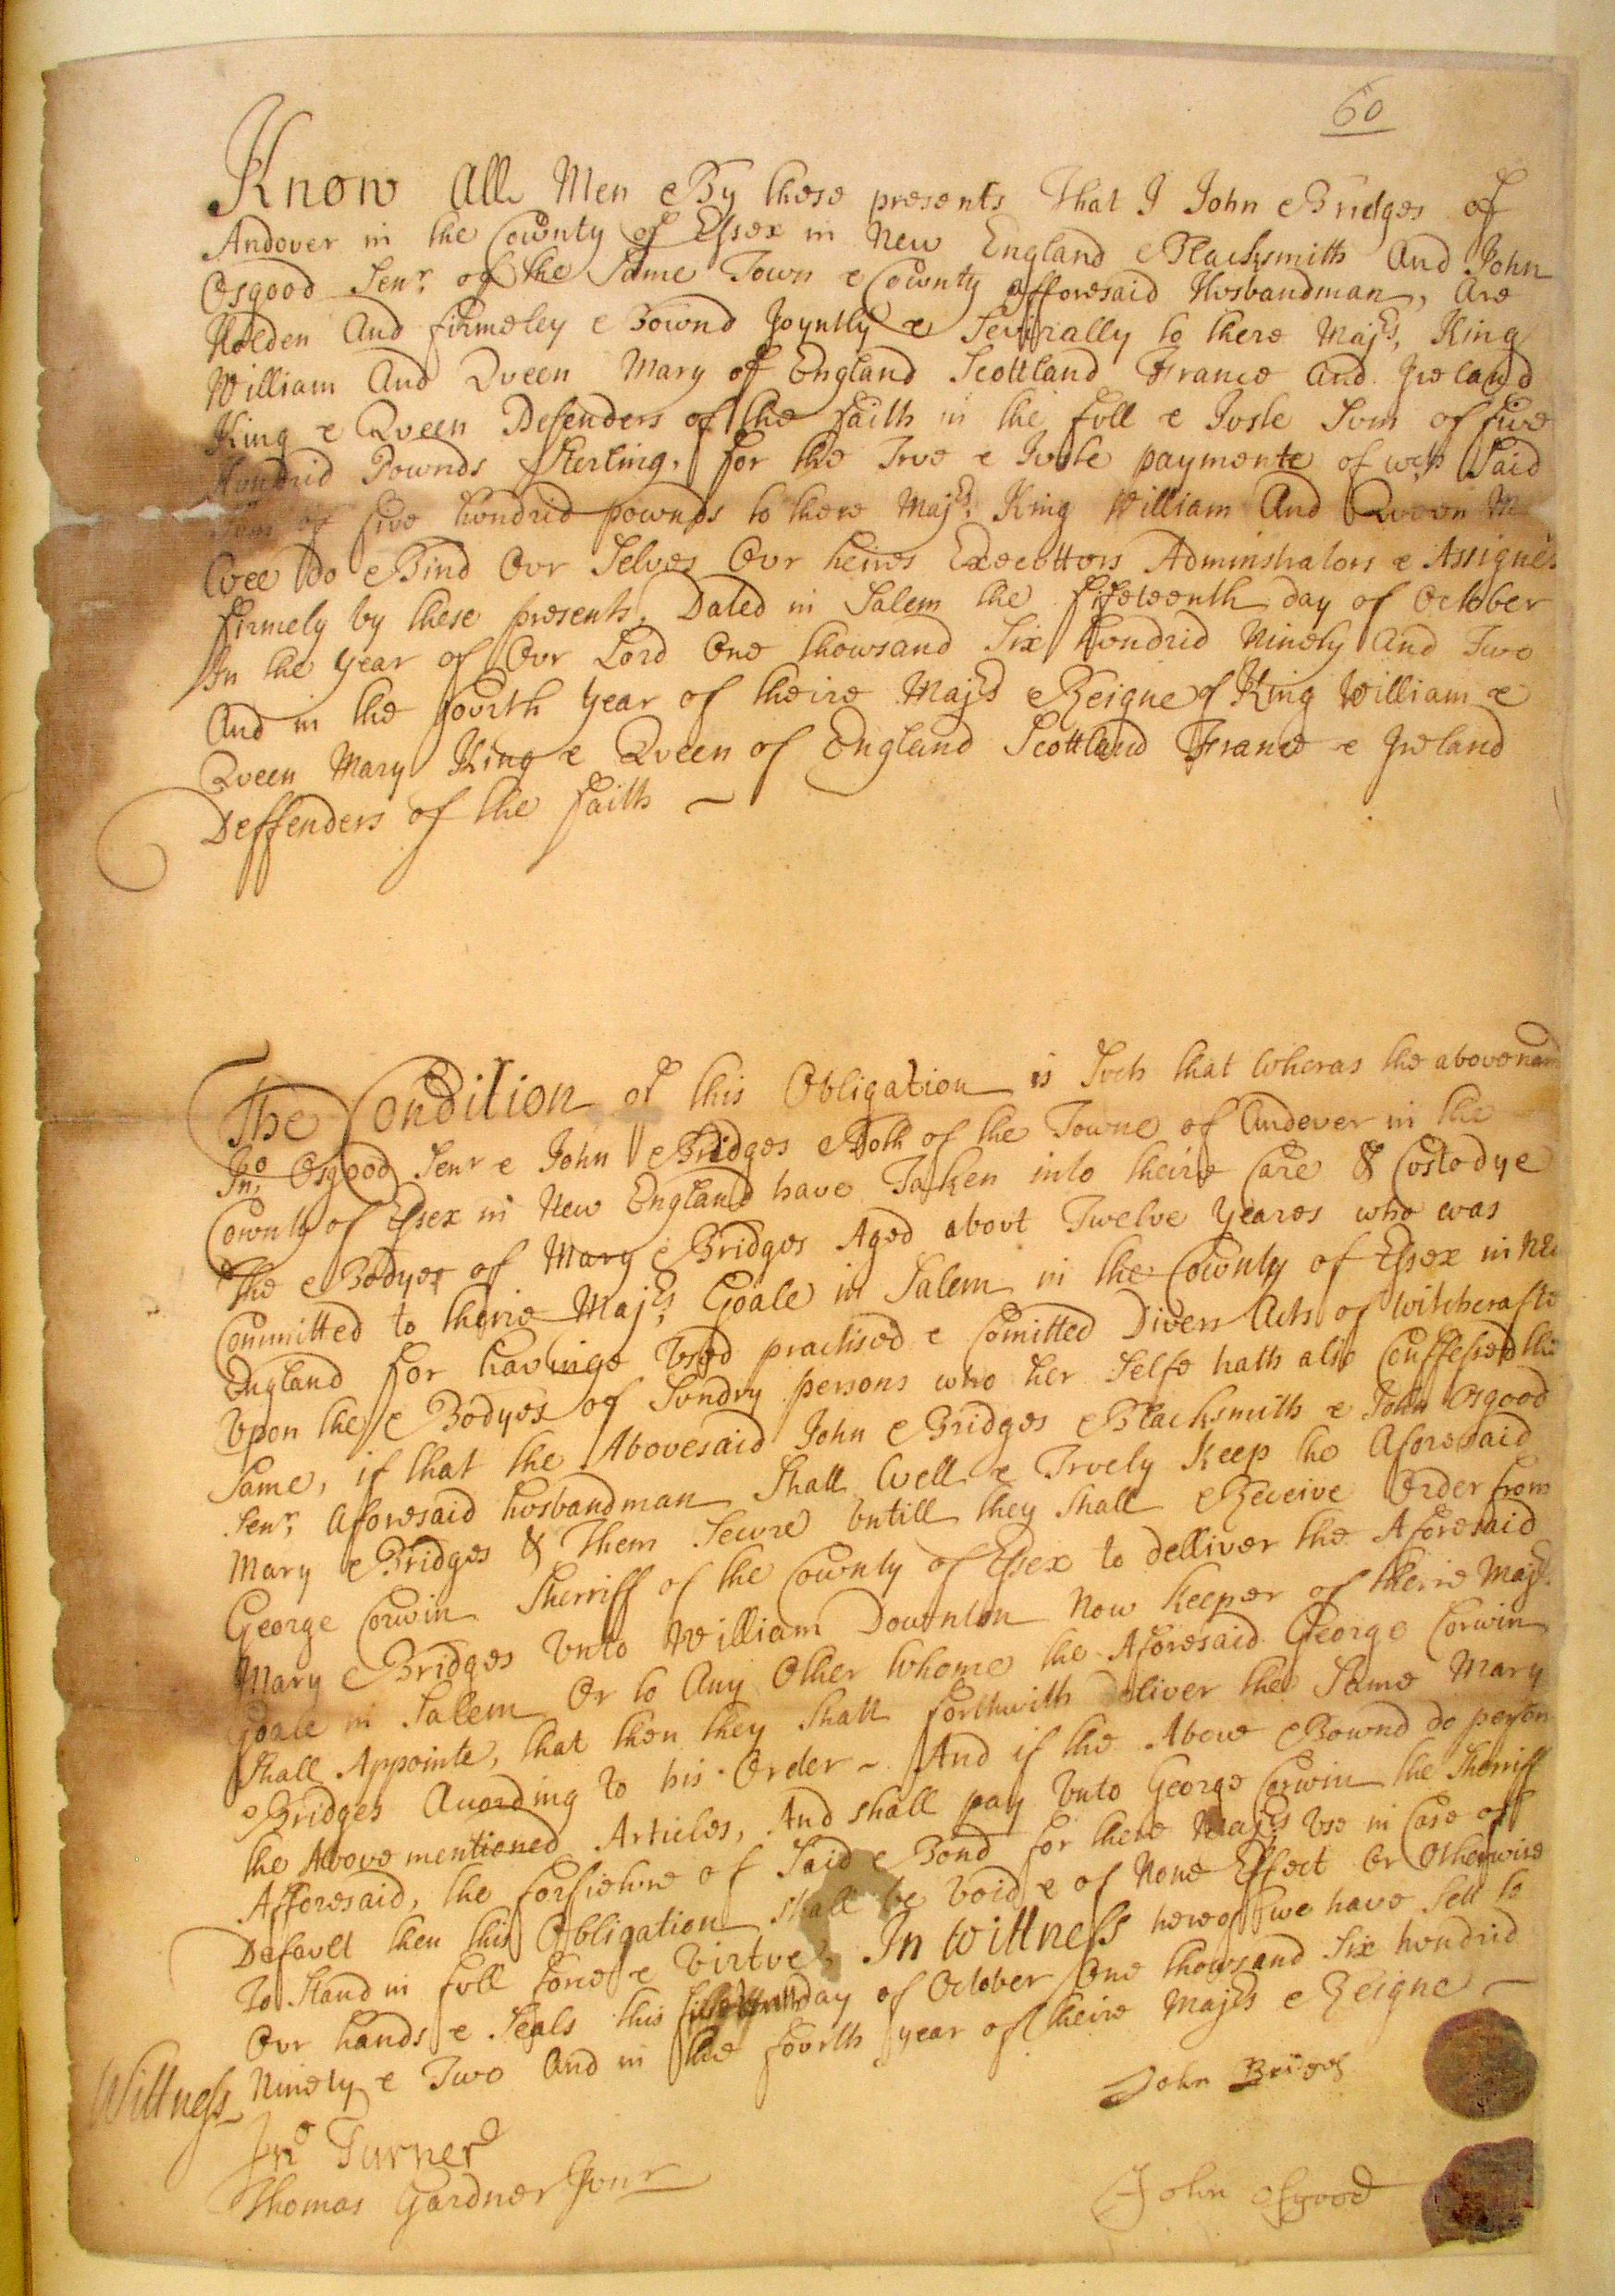 60
Know All Men By these presents That I John Bridges of
Andover in the County of Essex in New England Blacksmith And John
Osgood Senr. of the Same Town & County afforesaid Husbandman, Are
Holden And firmeley Bownd Joyntly & Sevirally to there Majes, King
William And Queen Mary of England Scottland France And Ireland
King & Queen Defenders of the faith in the full & Juste Sum of five
Hundrid Pownds Sterling, for the True & Juste paymente of wch Said
Sum of five hundrid pownds to there Majes, King William And Queen M
Wee do Bind Our Selves Our heires Executtors Adminstrators & Assignes
firmely by these presents, Dated in Salem the fifeteenth day of October
In the year of Our Lord One thowsand Six hundrid Ninety And Two
And in the fourth year of theire Majes Reigne of King William &
Queen Mary King & Queen of England Scottland France & Ireland
Deffenders of the faith ~
The Condition of this Obligation is Such that Wheras the abovenam
Jno. Osgood Senr & John Bridges Both of the Towne of Andover in the
County of Essex in New England have Taken into theire Care & Custodye
the Bodyes of Mary Bridges Aged about Twelve yeares who was
Committed to therie Majes, Goale in Salem in the County of Essex in New
England for havinge Used practised & Comitted Divers Acts of Witchcrafte
Upon the Bodyes of Sundry persons who her Selfe hath also Conffessed the
Same, if that the Abovesaid John Bridges Blacksmith & John Osgood
Senr, aforesaid husbandman Shall Well & Truely Keep the Aforesaid
Mary Bridges & Them Secure Untill they Shall Receive Order from
George Corwin Sherriff of the County of Essex to delliver the Aforesaid
Mary Bridges Unto William Downton Now Keeper of therie Majes,
Goale in Salem Or to Any Other Whome the Aforesaid George Corwin
Shall Appointe, that then they Shall forthwith deliver the Same Mary
Bridges Acording to his Order ~ And if the Above Bownd do perform
the Above mentioned Articles, And shall pay Unto George Corwin the Sherriff
Afforesaid, the forfieture of Said Bond for there Majes Use in Case of
Default then this Obligation shall be Void & of None Effect Or Otherwise
To Stand in full force & Virtue, In Wittness hereof we have Sett to
Our hands & Seals this fifeteenth day of October One thowsand Six hundrid
Ninety & Two And in the fourth year of theire Majes Reigne ~
Wittness
John Bridges
Jno Turner
Thomas Gardner Junr
John Osgood